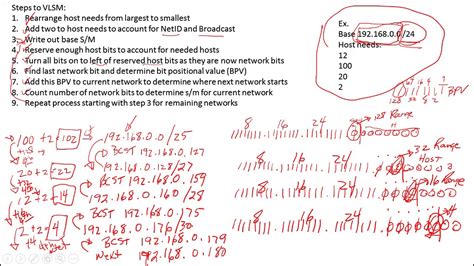 Steps to VLSM:
1. Rearrange host needs from largest to smallest
2. Add two to host needs to account for NetID and Broadcast
3. Write out base S/M
4. Reserve enough host bits to account for needed hosts
5. Turn all bits on to left of reserved host bits as they are now network bits
6. Find last network bit and determine bit positional value (BPV)
7. Add this BPV to current network to determine where next network starts
8. Count number of network bits to determine s/m for current network
9. Repeat process starting with step 3 for remaining networks
Ex.
Base 192.168.0.0/24
Host needs:
12
100
20
2
BPV
128
100 + 2 = 102
192.168.0.0 /25
BCST 192.168.0.127
20 + 2 = 22
192.168.0.128/27
BCST 192.168.0.159
192.168.0.160 /28
BCST 192.168.0.175
2 + 2 = 4
192.168.0.176/30
BCST 192.168.0.179
Next 192.168.0.180
8 16 24 128 Range
8 16 24 32 Range
Host
8 16 24 16 Range
8 16 24 4